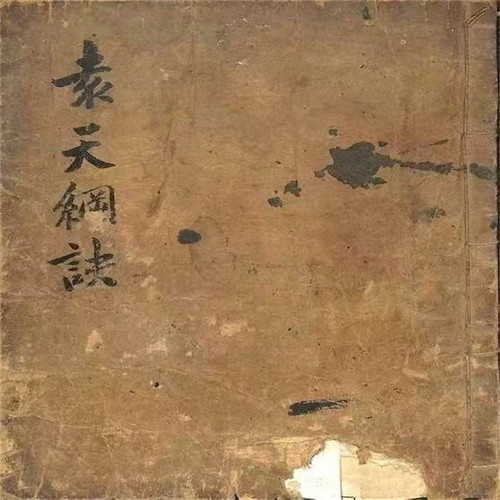 袁天綱訣